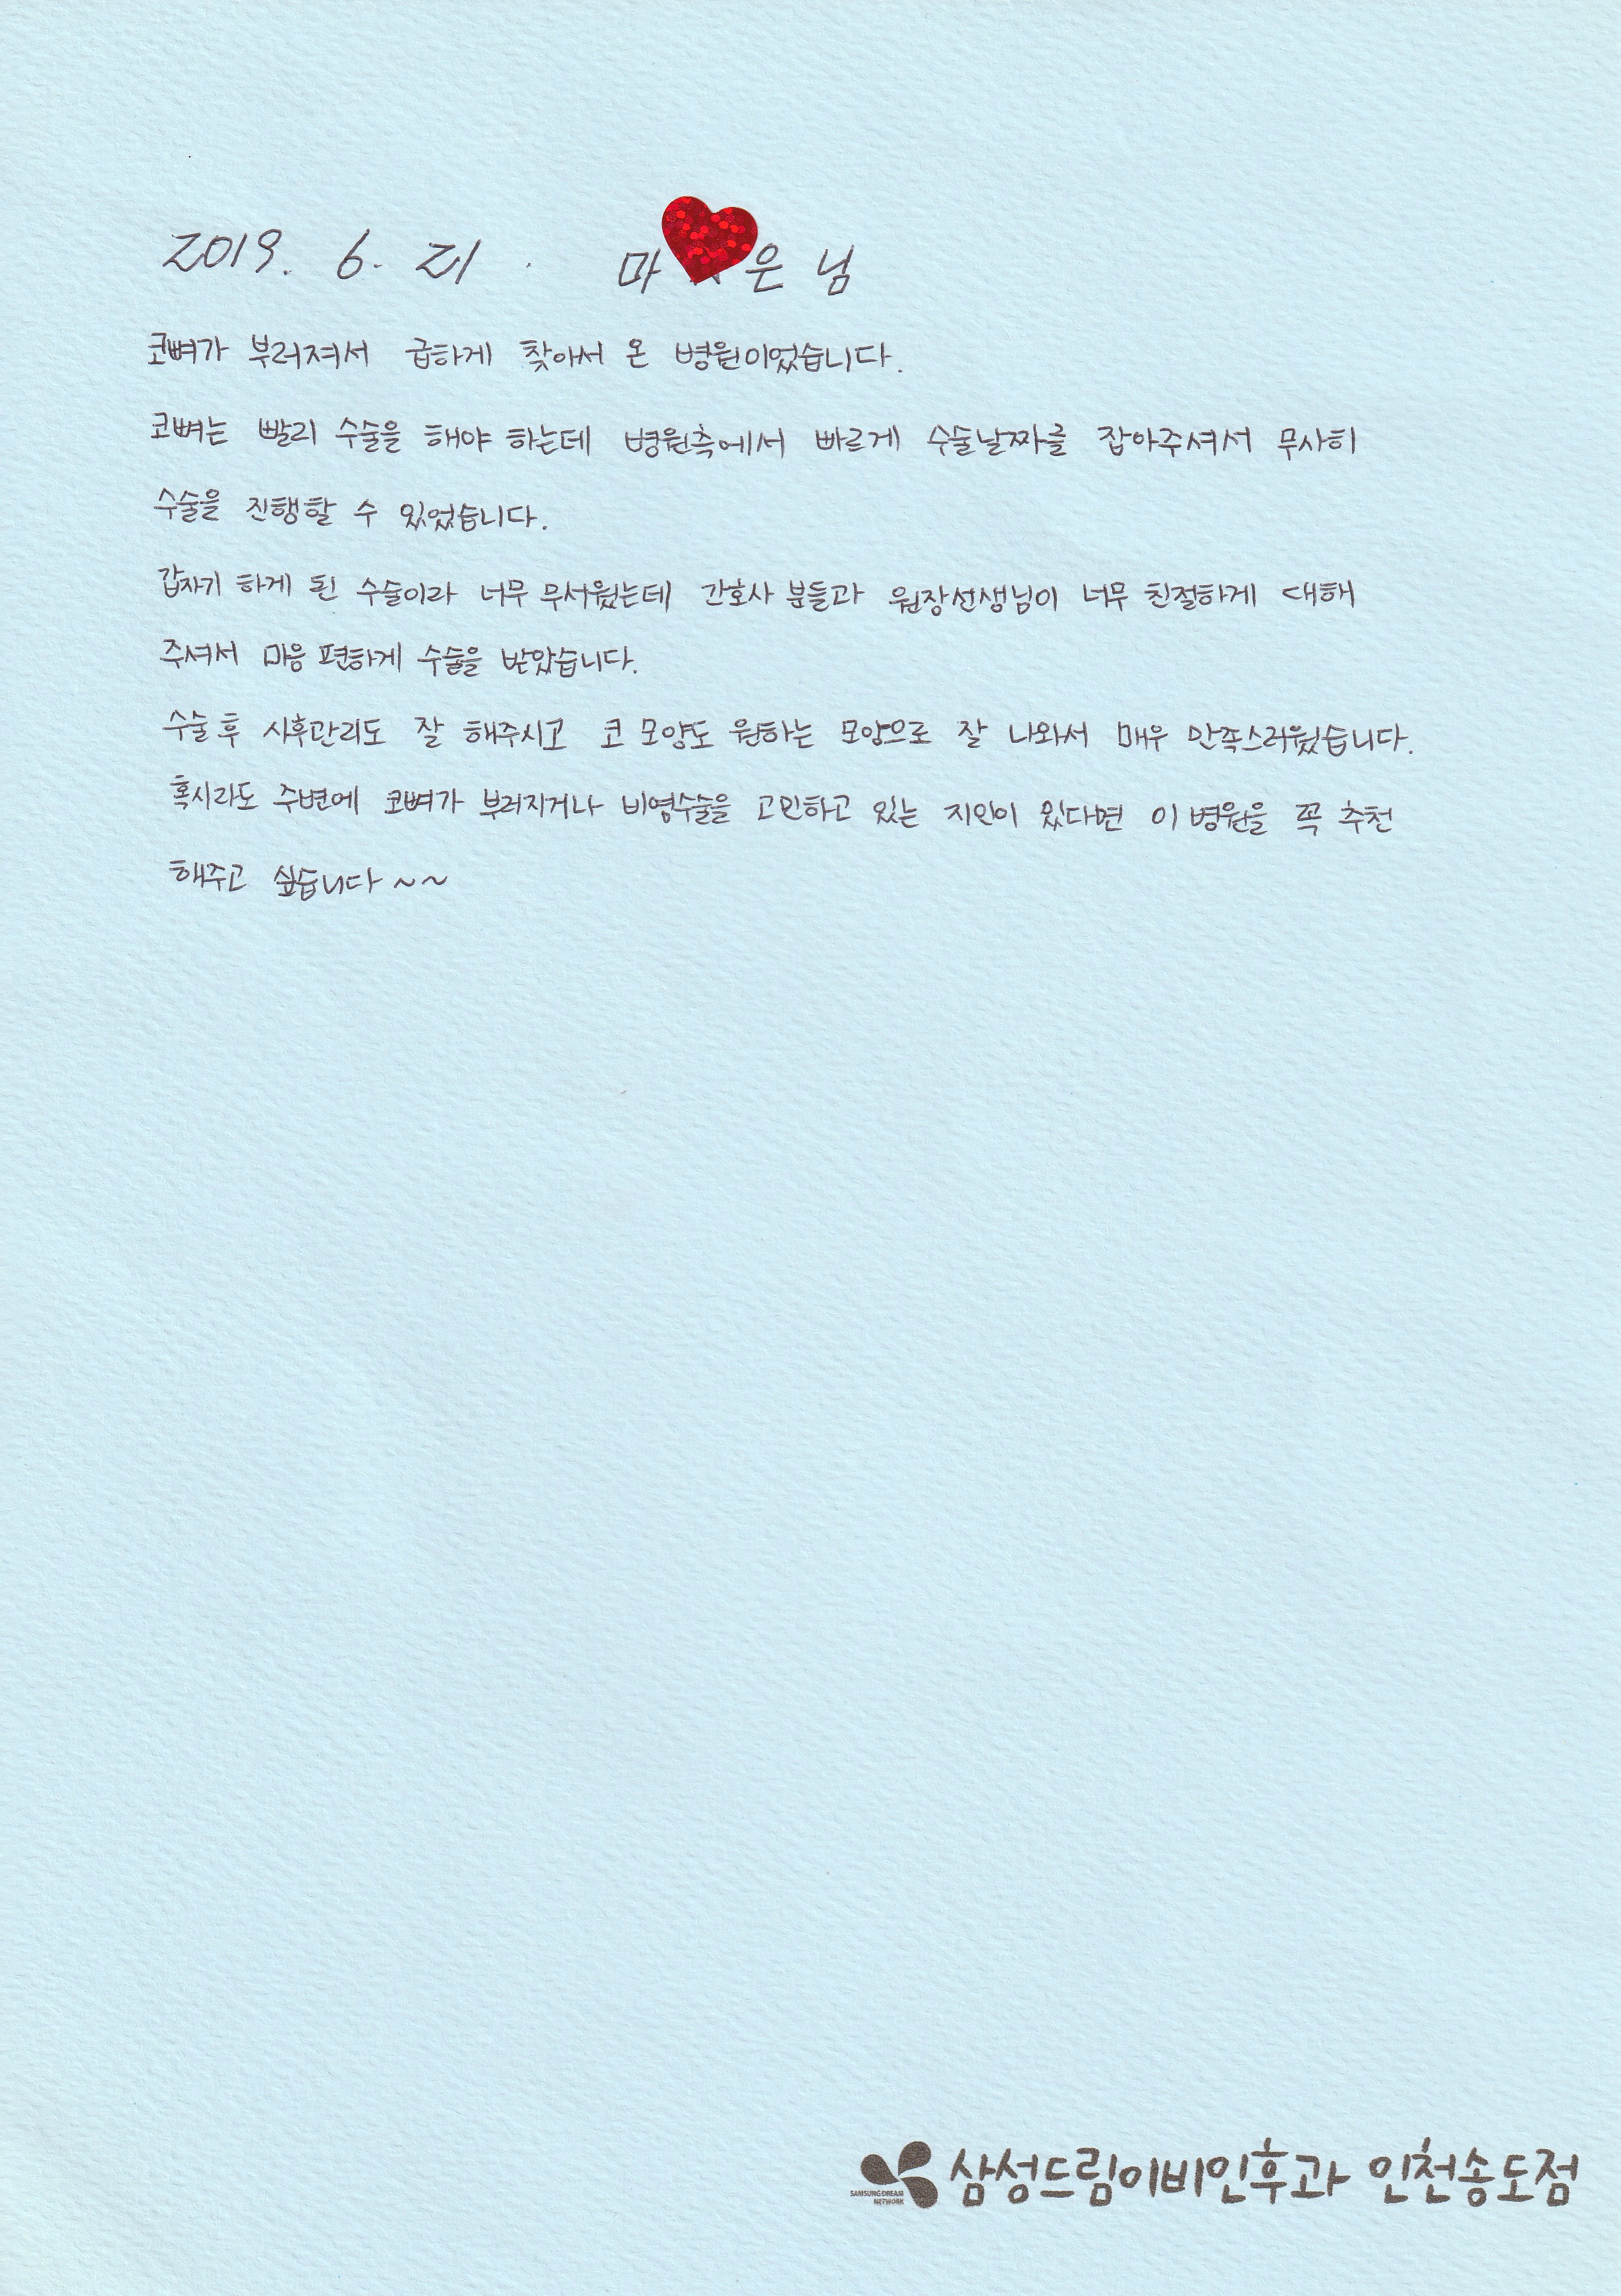 2019. 6. 21. 마 은 님
코뼈가 부러져서 급하게 찾아서 온 병원이었습니다.
코뼈는 빨리 수술을 해야 하는데 병원측에서 빠르게 수술날짜를 잡아주셔서 무사히
수술을 진행할 수 있었습니다.
갑자기 하게 된 수술이라 너무 무서웠는데 간호사 분들과 원장선생님이 너무 친절하게 대해
주셔서 마음 편하게 수술을 받았습니다.
수술 후 사후관리도 잘 해주시고 코 모양도 원하는 모양으로 잘 나와서 매우 만족스러웠습니다.
혹시라도 주변에 코뼈가 부러지거나 비염수술을 고민하고 있는 지인이 있다면 이 병원을 꼭 추천
해주고 싶습니다~~
SAMSUNG DREAM
NETWORK
삼성드림이비인후과 인천송도점